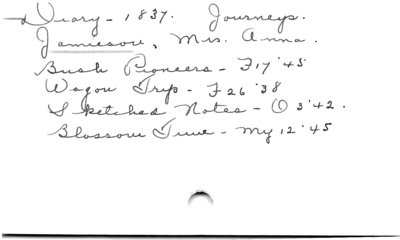 Diary - 1837. Journeys.
Jamieson, Mrs. Anna.
Bush Pioneers - F 17 '45
Wagon Trip - F 26 '38
Sketched Notes - O 3 '42.
Blossom Time - My 12 '45